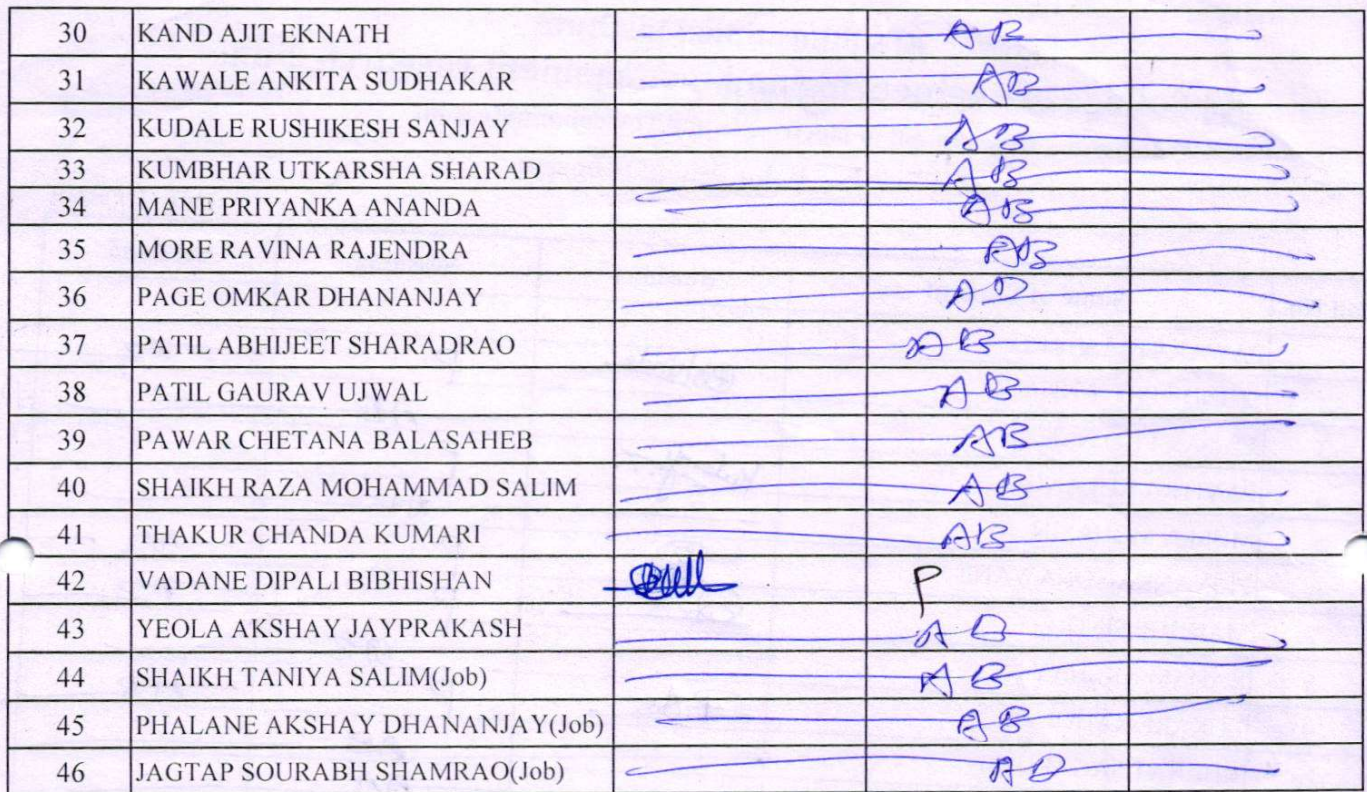 30 KAND AJIT EKNATH AB
31 KAWALE ANKITA SUDHAKAR AB
32 KUDALE RUSHIKESH SANJAY AB
33 KUMBHAR UTKARSHA SHARAD AB
34 MANE PRIYANKA ANANDA AB
35 MORE RAVINA RAJENDRA AB
36 PAGE OMKAR DHANANJAY AB
37 PATIL ABHIJEET SHARADRAO AB
38 PATIL GAURAV UJWAL AB
39 PAWAR CHETANA BALASAHEB AB
40 SHAIKH RAZA MOHAMMAD SALIM AB
41 THAKUR CHANDA KUMARI AB
42 VADANE DIPALI BIBHISHAN P
43 YEOLA AKSHAY JAYPRAKASH AB
44 SHAIKH TANIYA SALIM(Job) AB
45 PHALANE AKSHAY DHANANJAY(Job) AB
46 JAGTAP SOURABH SHAMRAO(Job) AB